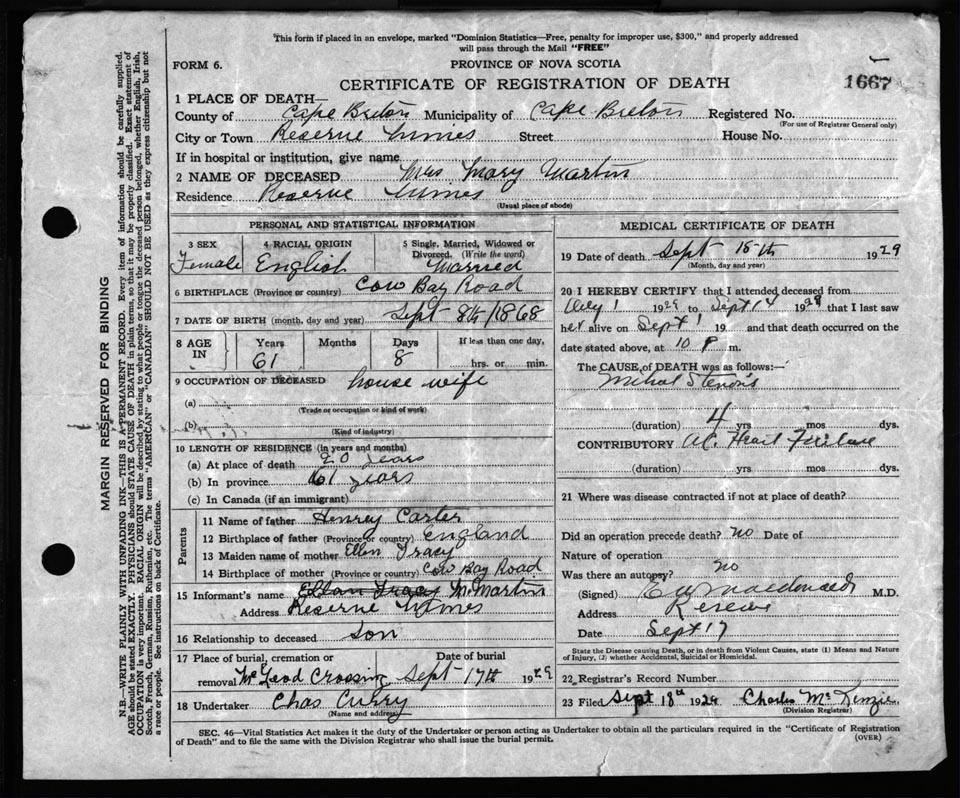 This form if placed in an envelope, marked "Dominion Statistics—Free, penalty for improper use, $300," and properly addressed
will pass through the Mail "FREE"
FORM 6.
PROVINCE OF NOVA SCOTIA
CERTIFICATE OF REGISTRATION OF DEATH
1667
1 PLACE OF DEATH—
County of Cape Breton Municipality of Cape Breton Registered No.
(For use of Registrar General only)
City or Town Reserve Mines Street House No.
If in hospital or institution, give name
2 NAME OF DECEASED Mrs Mary Martin
Residence Reserve Mines
(Usual place of abode)
PERSONAL AND STATISTICAL INFORMATION
3 SEX 4 RACIAL ORIGIN 5 Single, Married, Widowed or
Divorced. (Write the word)
Female English Married
6 BIRTHPLACE (Province or country) Cow Bay Road
7 DATE OF BIRTH (month, day and year) Sept 8th/1868
8 AGE IN Years Months Days If less than one day,
61 8 hrs. or min.
9 OCCUPATION OF DECEASED house wife
(a)
(Trade or occupation or kind of work)
(b)
(Kind of industry)
10 LENGTH OF RESIDENCE (in years and months)
(a) At place of death 20 years
(b) In province 61 years
(c) In Canada (if an immigrant)
Parents
11 Name of father Henrey Carter
12 Birthplace of father (Province or country) England
13 Maiden name of mother Ellen Tracy
14 Birthplace of mother (Province or country) Cow Bay Road
15 Informant's name Ellan Tracy M. Martin
Address Reserve Mines
16 Relationship to deceased Son
17 Place of burial, cremation or Date of burial
removal McLeod Crossing Sept 17th 1929
18 Undertaker Chas Curry
(Name and address)
MEDICAL CERTIFICATE OF DEATH
19 Date of death Sept 15th 1929
(Month, day and year)
20 I HEREBY CERTIFY that I attended deceased from
1 1929 to Sept 14 1928 that I last saw
her alive on Sept 1 19 and that death occurred on
date stated above, at 10 P m.
The CAUSE of DEATH was as follows:—
Mitral Stenosis
(duration) 4 yrs mos dys.
CONTRIBUTORY Ac. Heart Failure
(duration) yrs mos dys.
21 Where was disease contracted if not at place of death?
Did an operation precede death? no Date of
Nature of operation
Was there an autopsy? no
(Signed) Macdonald M.D.
Address Reserve
Date Sept 17
State the Disease causing Death, or in death from Violent Causes, state (1) Means and Nature
of Injury, (2) whether Accidental, Suicidal or Homicidal.
22 Registrar's Record Number
23 Filed Sept 18th 1929 Charles McKenzie
(Division Registrar)
SEC. 46—Vital Statistics Act makes it the duty of the Undertaker or person acting as Undertaker to obtain all the particulars required in the "Certificate of Registration
of Death" and to file the same with the Division Registrar who shall issue the burial permit.
(OVER)
MARGIN RESERVED FOR BINDING
N.B.—WRITE PLAINLY WITH UNFADING INK—THIS IS A PERMANENT RECORD. Every item of information should be carefully supplied.
AGE should be stated EXACTLY. PHYSICIANS should STATE CAUSE OF DEATH in plain terms, so that it may be properly classified. Exact statement of
OCCUPATION is very important. RACIAL ORIGIN will be described by stating to what people or tongue the deceased person belonged, whether English, Irish,
Scotch, French, German, Russian, Ruthenian, etc. The terms "AMERICAN" or "CANADIAN" SHOULD NOT BE USED as they express citizenship but not
a race or people. See instructions on back of Certificate.